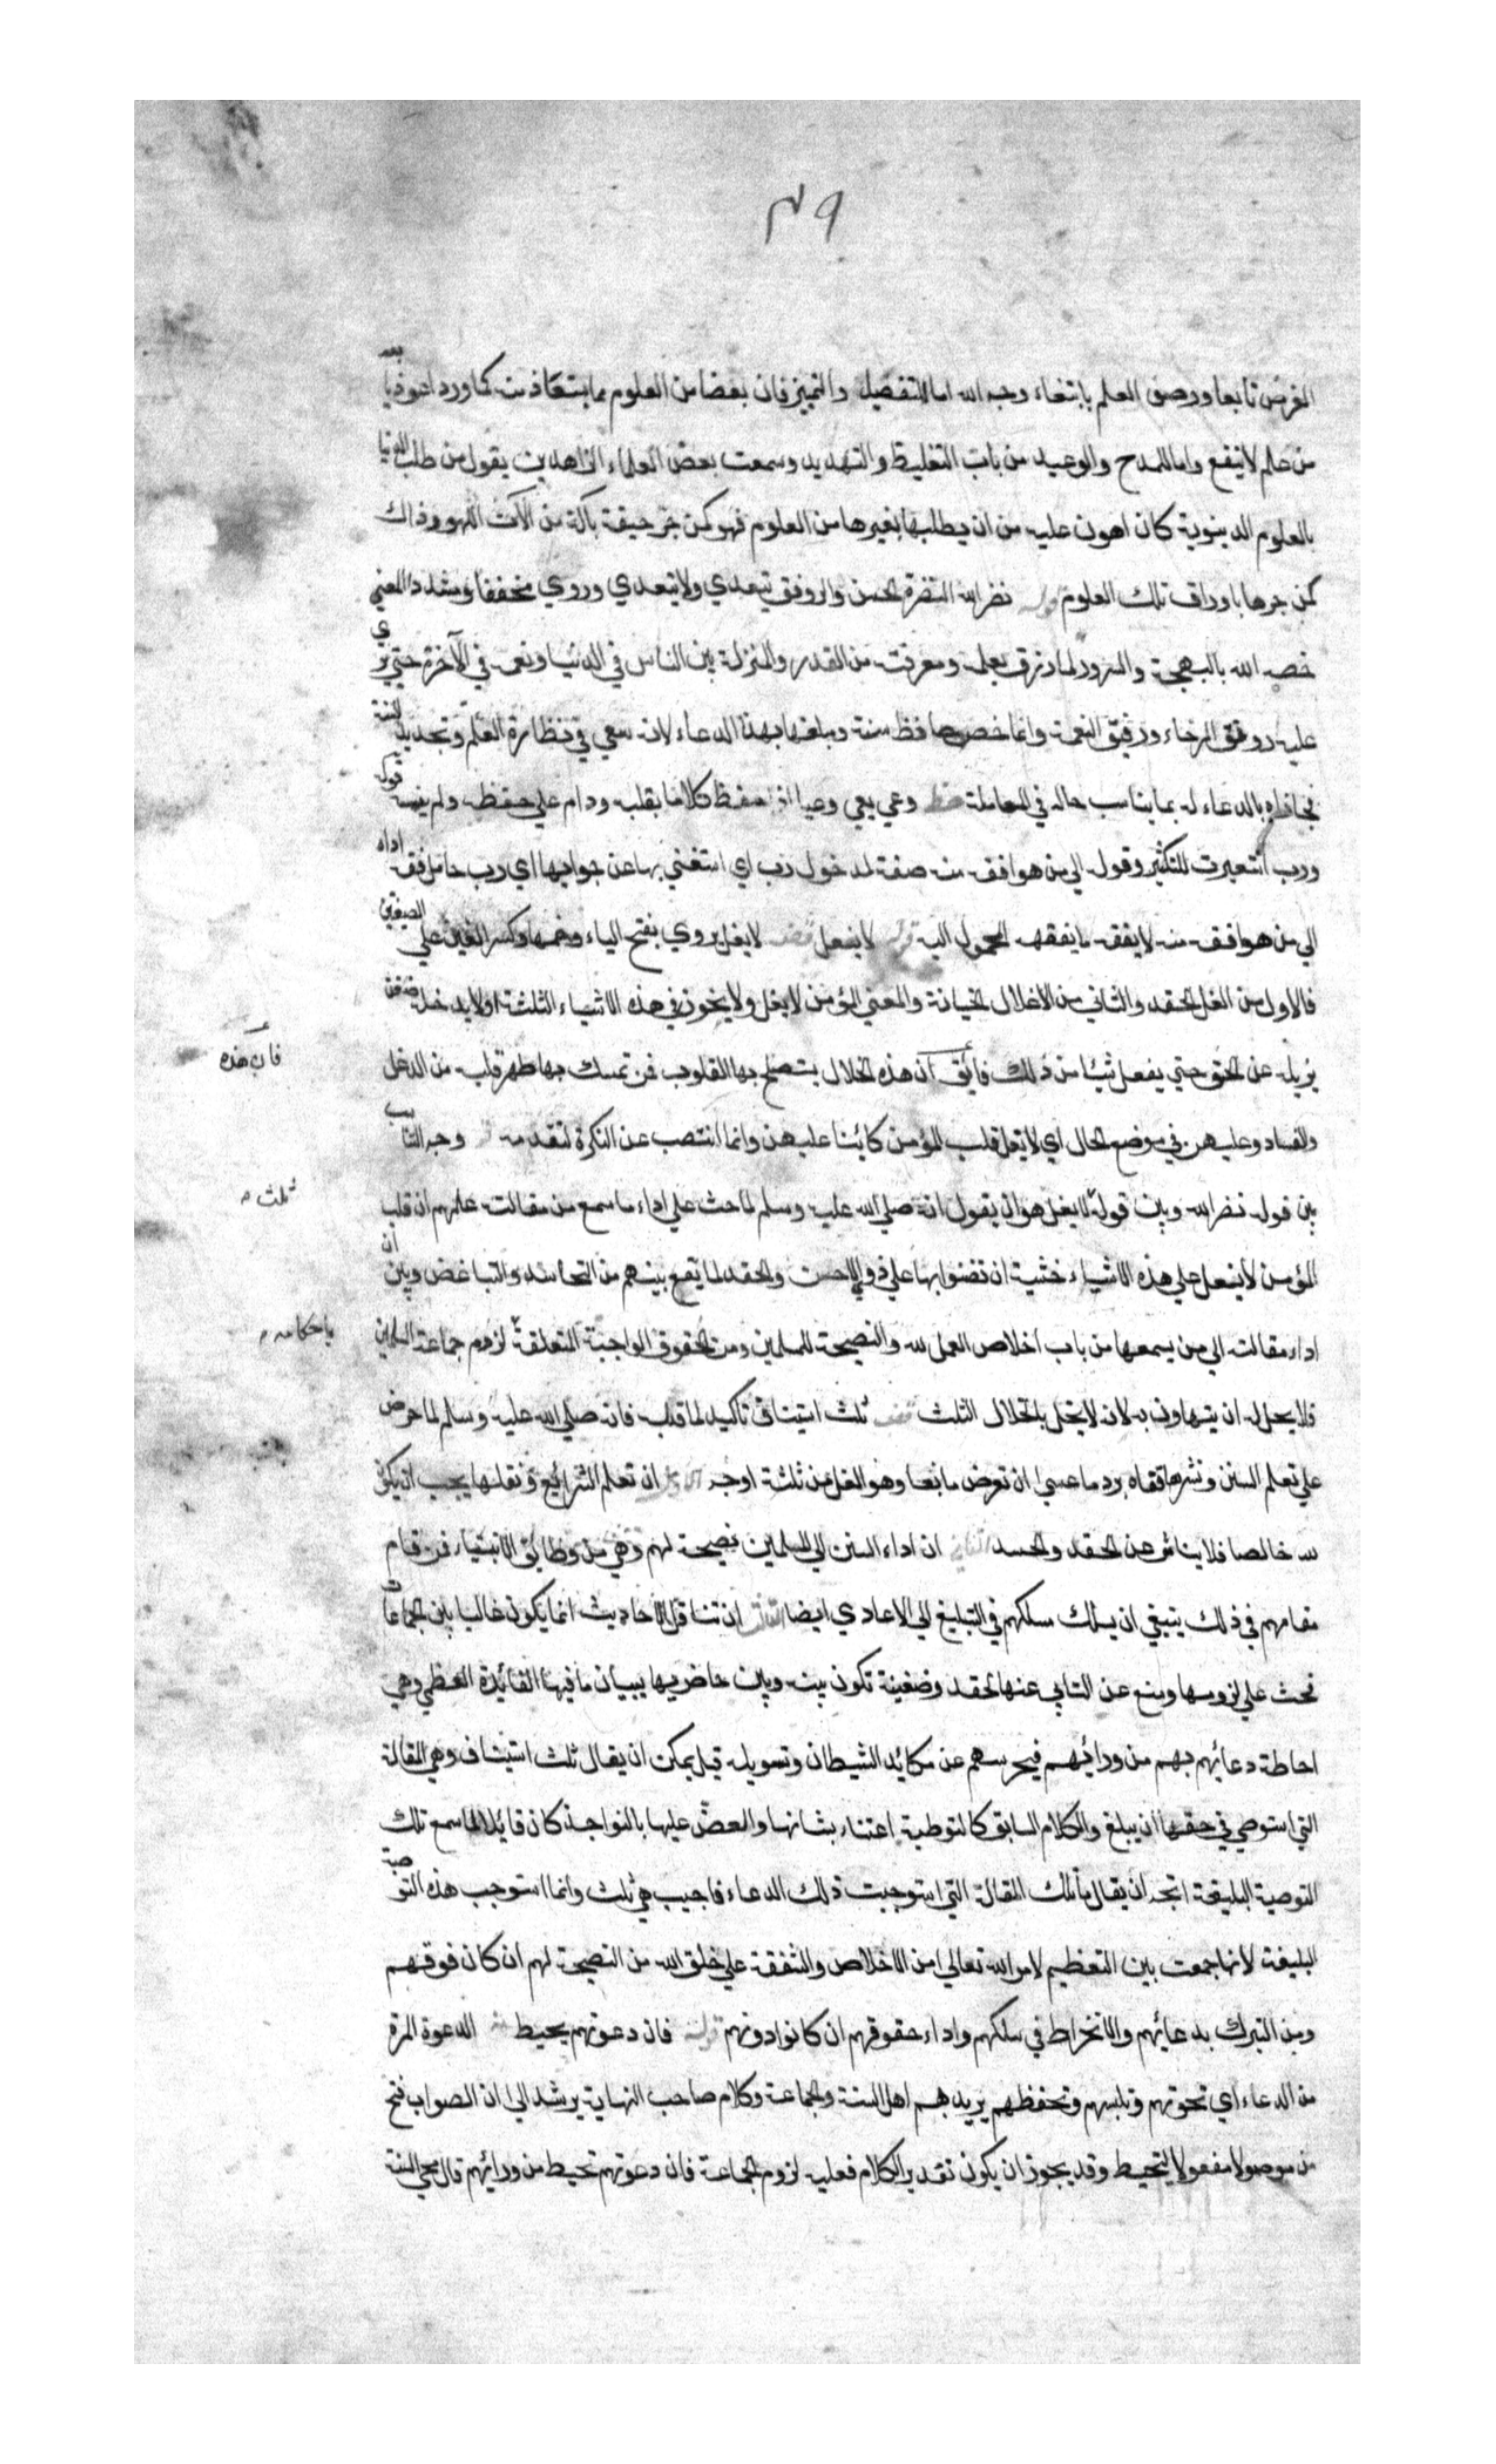 ٣٩
الغرض تابعا ووصف العلم بابتغاء وجه الله اما للتفصيل والتمييز فان بعضا من العلوم مما يستعاذ منه كما ورد اعوذ بك
من علم لا ينفع واما للمدح والوعيد من باب التغليظ والتهديد وسمعت بعض العلماء الزاهدين يقول من طلب الدنيا
بالعلوم الدنيوية كان اهون عليه من ان يطلبها بغيرها من العلوم فهو كمن جر جيفة بآلة من آلات اللهو وذاك
كمن جرها باوراق تلك العلوم نضر الله النضرة الحسن والرونق يتعدي ولا يتعدي وروي مخففا ومشددا المعني
خصه الله بالبهجة والسرور لما رزق بعلمه ومعرفته من القدر والمنزلة بين الناس في الدنيا ونعمه في الآخرة حتي يري
عليه رونق الرخاء ورفيق النعمة وانما خص حافظ سنته ومبلغها بهذا الدعاء لانه سعي في نضارة العلم وتجديد السنة
فجازاه بالدعاء له بما يناسب حاله في المعاملة وعي يعي وعيا اذا حفظ كلاما بقلبه ودام علي حفظه ولم ينسه قوله
ورب استعيرت للتكثير وقوله الي من هو افقه منه صفة لمدخول رب اي استغني بها عن جوابها اي رب حامل فقه اداه
الي من هو افقه منه لا يفقه ما يفقهه المحمول اليه قوله لا يغل يروي بفتح الياء وضمها وكسر الغين علي الصيغتين
فالاول من الغل الحقد والثاني من الاغلال الخيانة والمعني المؤمن لا يغل ولا يخون في هذه الاشياء الثلثة او لا يدخله ضغن
يزيله عن الحق حتي يفعل شيئا من ذلك فائق ان هذه الخلال يستصلح بها القلوب فمن تمسك بها طهر قلبه من الدغل
فان هذه
والفساد وعليهن في موضع الحال اي لا يغل قلب المؤمن كائنا عليهن وانما انتصب عن النكرة لتقدمه وجه التناسب
بين قوله نضر الله وبين قوله لا يغل هو ان يقول انه صلي الله عليه وسلم لما حث علي اداء ما سمع من مقالته علمهم ان قلب
ثلث
المؤمن لا يغل علي هذه الاشياء خشية ان تضنوا بها علي ذوي الاحن والحقد لما يقع بينهم من التحاسد والتباغض وبين ان
اداء مقالته الي من يسمعها من باب اخلاص العمل لله والنصيحة للمسلمين ومن الحقوق الواجبة المتعلقة لزوم جماعة المسلمين
باحكامه
فلا يحل له ان يتهاون به لانه لا يخل بالخلال الثلث ثلث استيناف تاكيد لما قبله فانه صلي الله عليه وسلم لما حرض
علي تعلم السنن ونشرها قفاه برد ما عسي ان تعرض مانعا وهو الغل من ثلثة اوجه ان تعلم الشرائع ونقلها يجب ان يكون
لله خالصا فلا يتاثر عن الحقد والحسد الثاني ان اداء السنن الي المسلمين نصيحة لهم وهي من وظائف الانبياء فمن قام
مقامهم في ذلك ينبغي ان يسلك مسلكهم في التبليغ الي الاعادي ايضا الثالث ان تناقل الاحاديث انما يكون غالبا بين الجماعات
فحث علي لزومها ومنع عن التابي عنها لحقد وضغينة تكون بينه وبين حاضريها ببيان ما فيها الفائدة العظمي وهي
احاطة دعائهم بهم من ورائهم فيحرسهم عن مكائد الشيطان وتسويله قيل يمكن ان يقال ثلث استيناف وهي المقالة
التي استوصي في حقها ان يبلغ والكلام السابق كالتوطية اعتناء بشانها والعض عليها بالنواجذ كان قائلا لما سمع تلك
التوصية البليغة اتجه ان يقال ما تلك المقالة التي استوجبت ذلك الدعاء فاجيب هي ثلث وانما استوجب هذه التوصية
البليغة لانها جمعت بين التعظيم لامر الله تعالي من الاخلاص والشفقة علي خلق الله من النصيحة لهم ان كان فوقهم
ومن التبرك بدعائهم والانخراط في سلكهم واداء حقوقهم ان كانوا دونهم قوله فان دعوتهم يحيط الدعوة المرة
من الدعاء اي تحوتهم وتلبسهم وتحفظهم يريد بهم اهل السنة والجماعة وكلام صاحب النهاية يرشد الي ان الصواب فتح
من موصولا مفعولا لتحيط وقد يجوز ان يكون تقدير الكلام فعليه لزوم الجماعة فان دعوتهم تحيط من ورائهم قال محي السنة